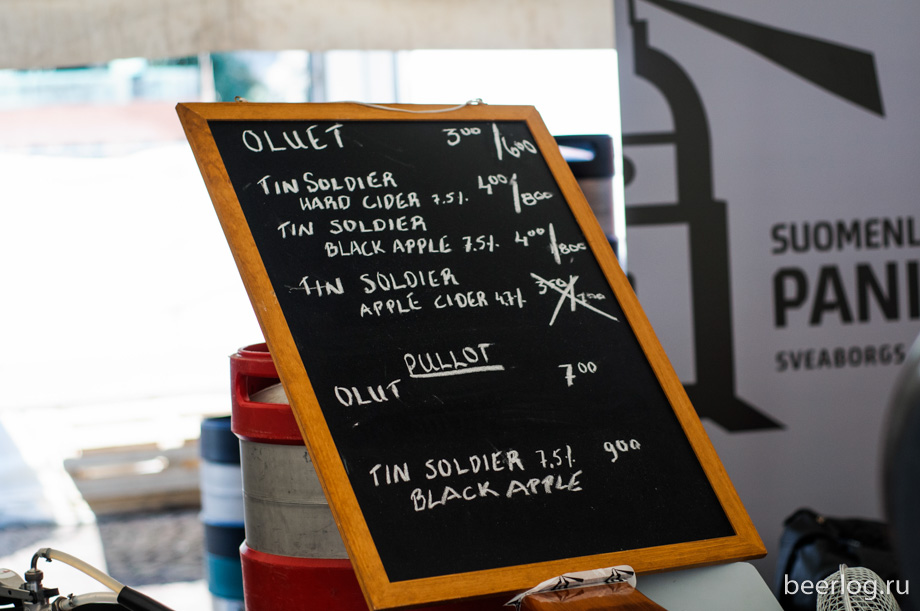 OLUET 3⁰⁰/6⁰⁰
TIN SOLDIER 4⁰⁰/8⁰⁰
HARD CIDER 7.5%
TIN SOLDIER
BLACK APPLE 7.5% 4⁰⁰/8⁰⁰
TIN SOLDIER
APPLE CIDER 4,7%
PULLOT
OLUT 7⁰⁰
TIN SOLDIER 7,5% 9⁰⁰
BLACK APPLE
SUOMENL
PANI
SVEABORGS
beerlog.ru